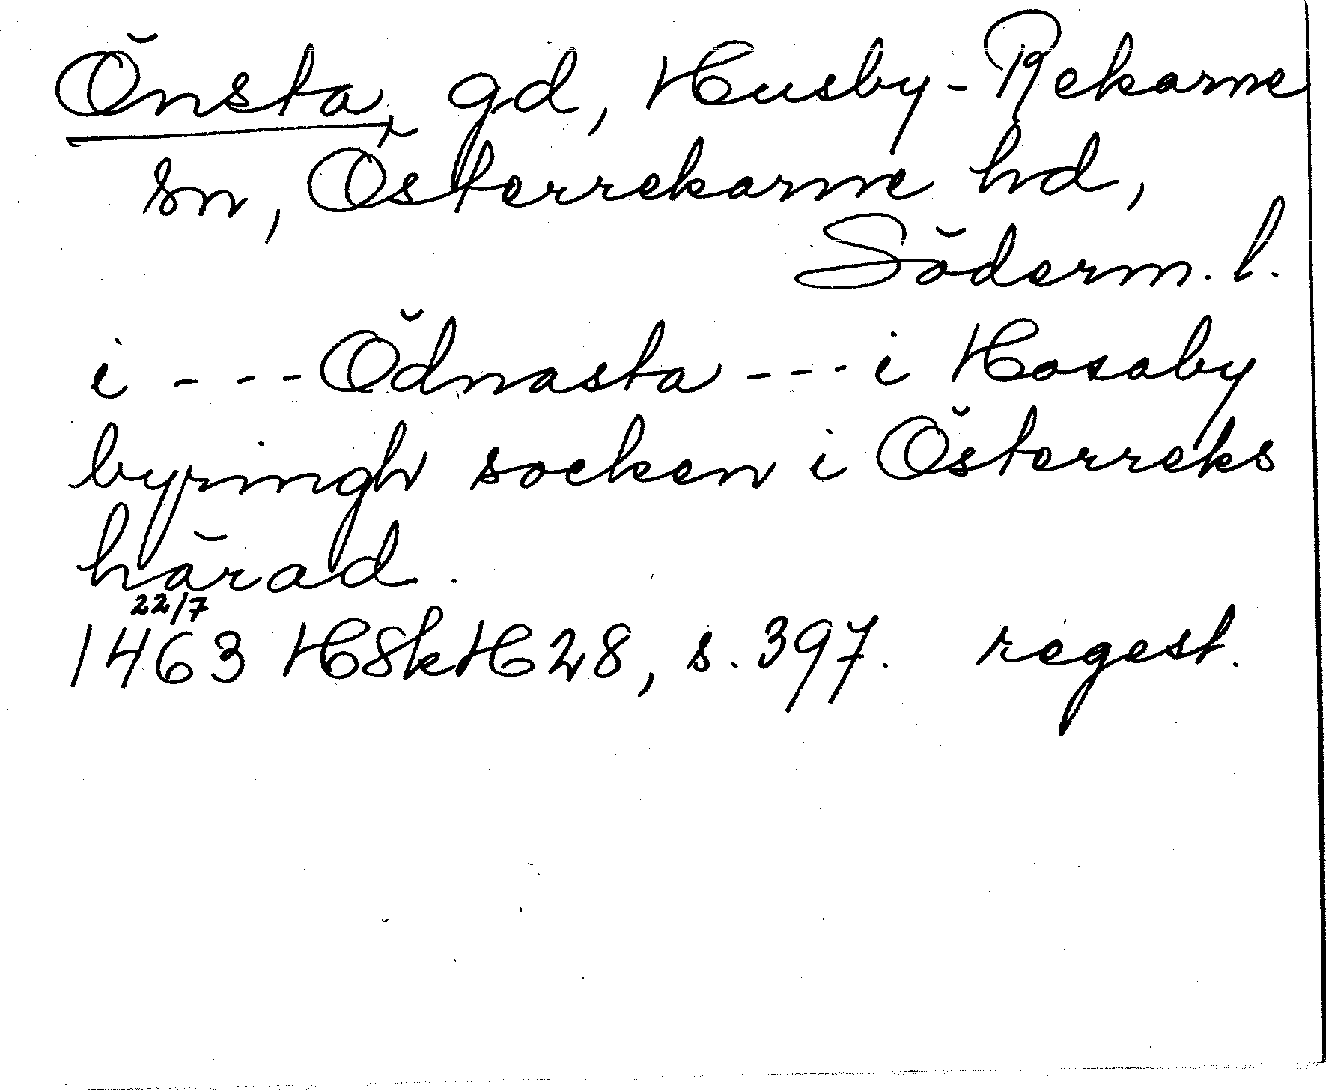 Önsta, gd, Husby-Rekarne
sn, Österrekarne hd,
Söderm. l.
i - - - Ödnasta - - - i Hosaby
byringh socken i Österreks
härad.
22/7
1463 HSkH 28, s. 397. regest.